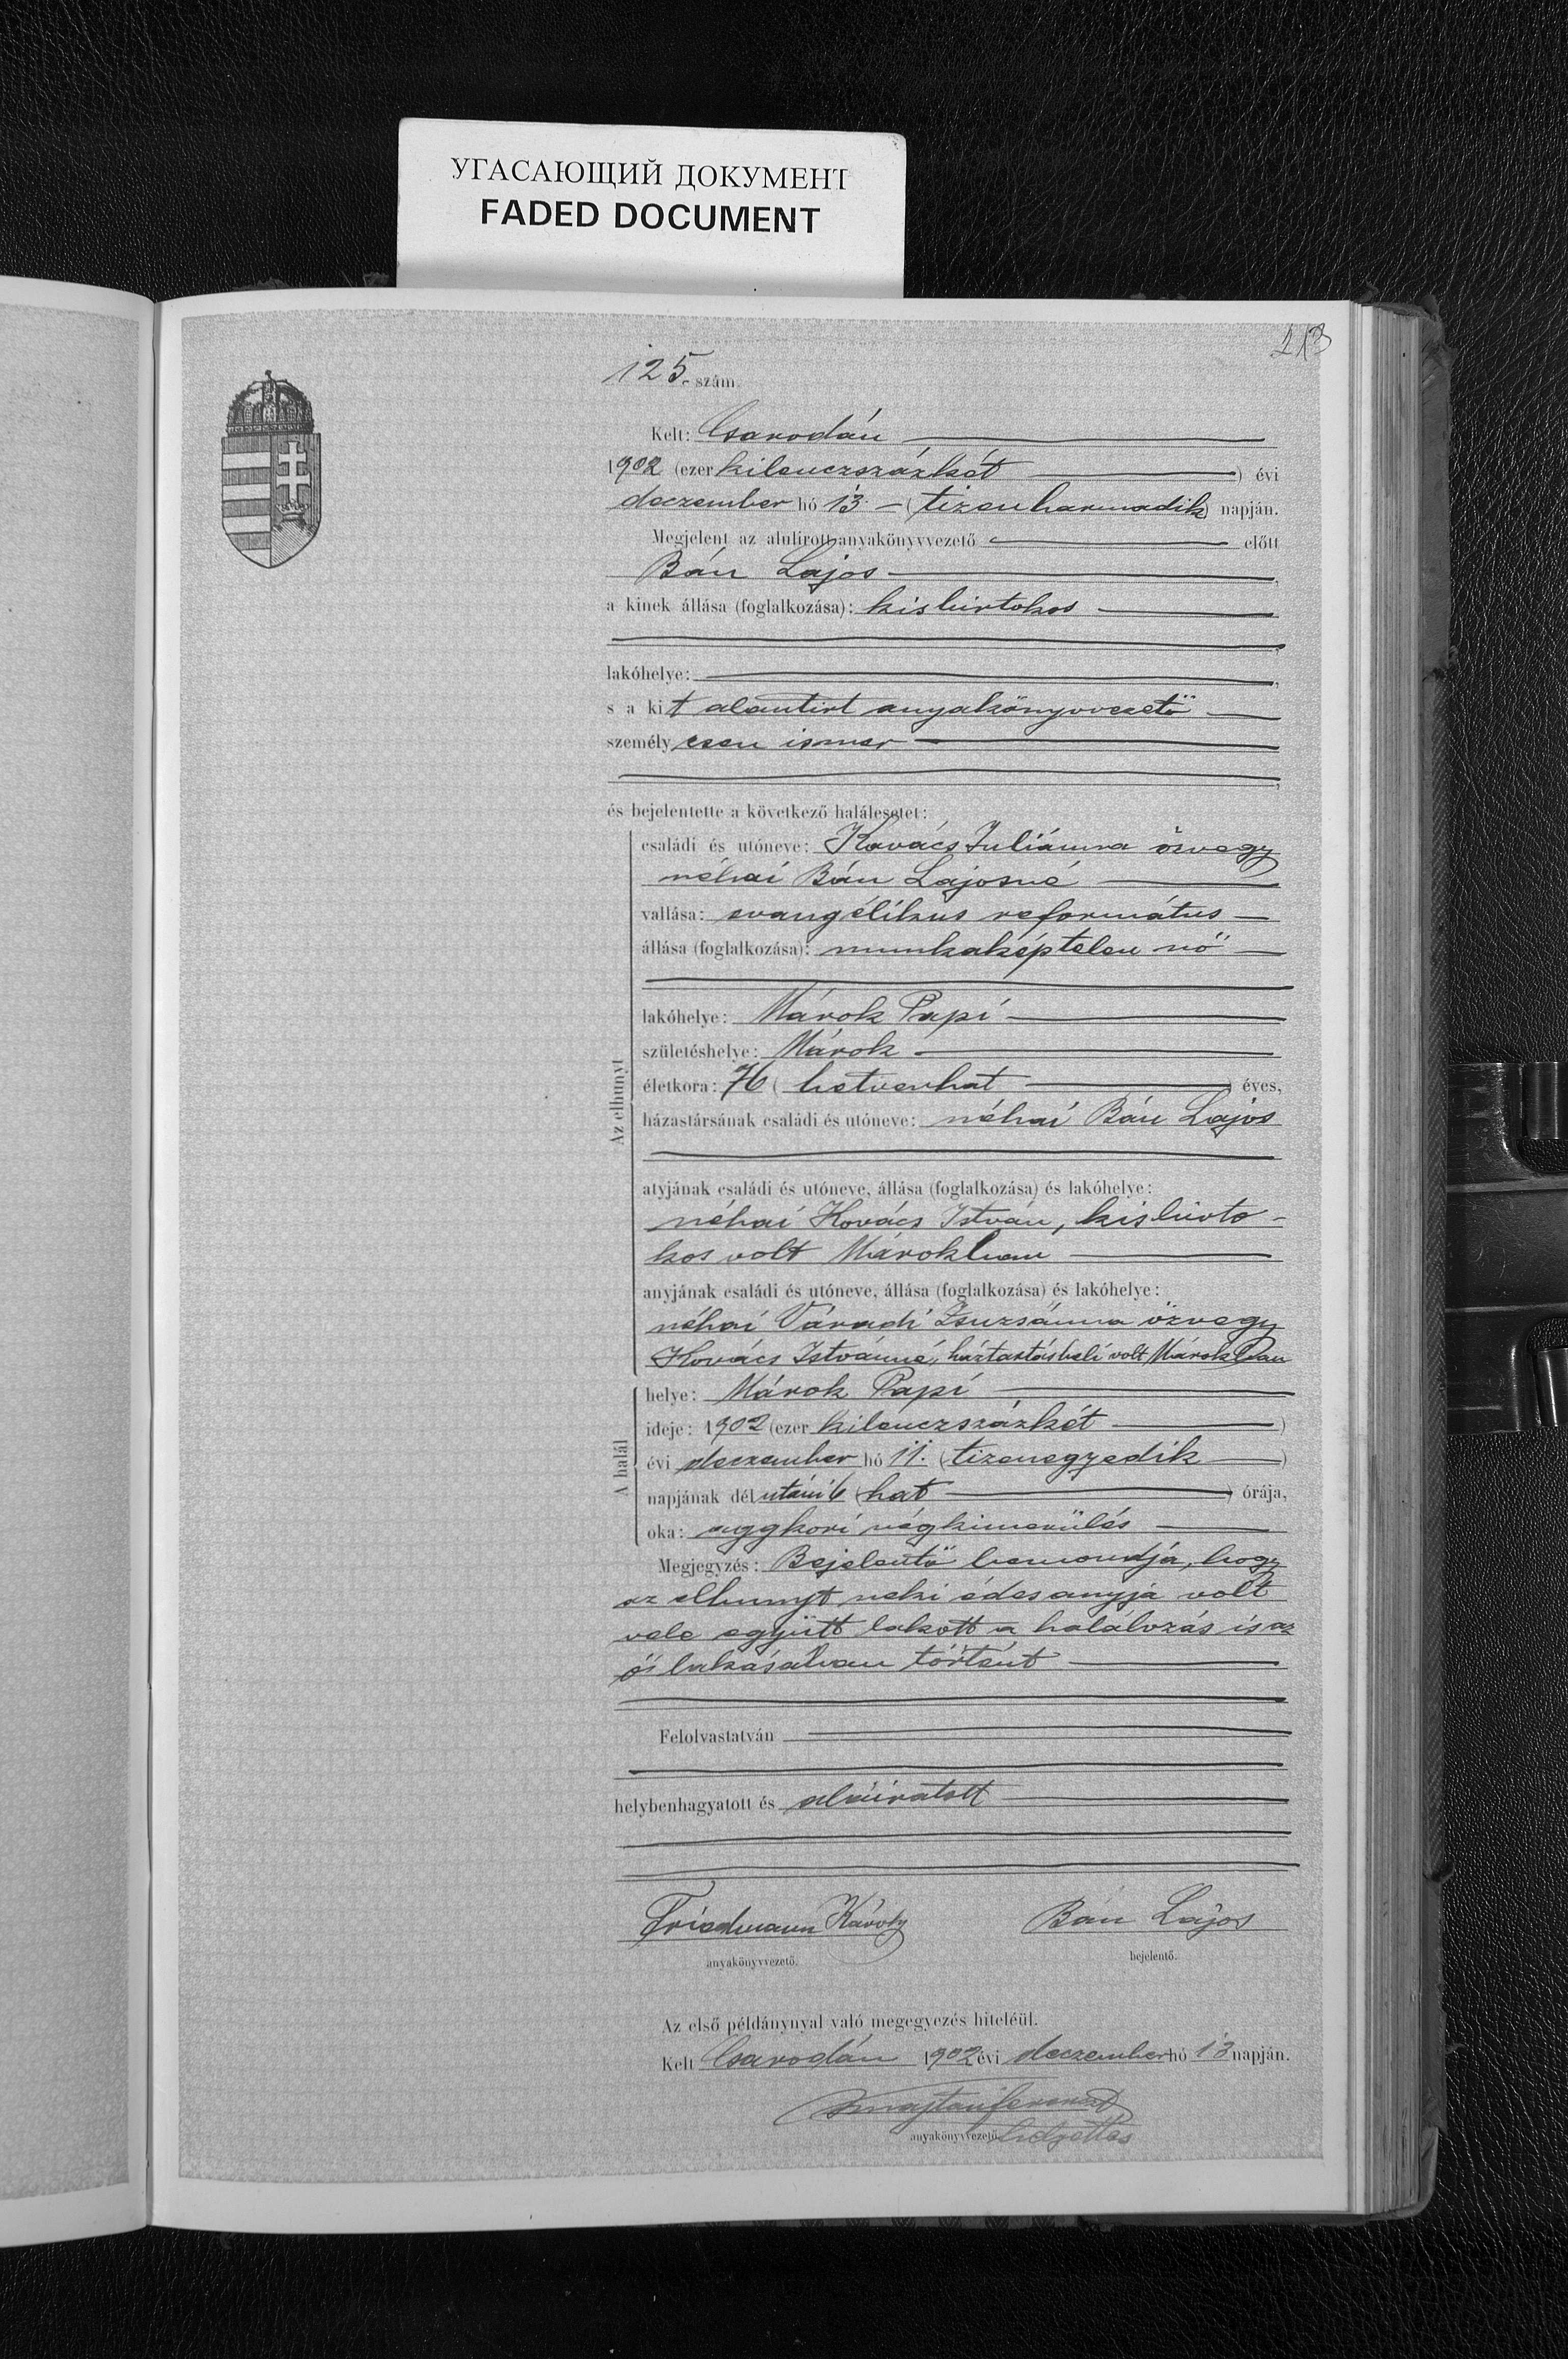 УГАСАЮЩИЙ ДОКУМЕНТ
FADED DOCUMENT
213
125. szám.
Kelt: Csarodán
1902 (ezer kilenczszázkét) évi
deczember hó 13 (tizenharmadik) napján.
Megjelent az alulirott anyakönyvvezető előtt
Bán Lajos,
a kinek állása (foglalkozása): kisbirtokos
lakóhelye:
s a kit alantirt anyakönyvvezető
személyesen ismer
és bejelentette a következő halálesetet:
Az elhunyt
családi és utóneve: Kovács Juliánna özvegy
néhai Bán Lajosné
vallása: evangélikus református
állása (foglalkozása): munkaképtelen nő
lakóhelye: Márok Papi
születéshelye: Márok
életkora: 76 (hetvenhat) éves,
házastársának családi és utóneve: néhai Bán Lajos
atyjának családi és utóneve, állása (foglalkozása) és lakóhelye:
néhai Kovács István, kisbirto-
kos volt Márokban
anyjának családi és utóneve, állása (foglalkozása) és lakóhelye:
néhai Váradi Zsuzsánna özvegy
Kovács Istvánné, háztartásbeli volt Márokban
A halál
helye: Márok Papi
ideje: 1902 (ezer kilenczszázkét)
évi deczember hó 11. (tizenegyedik)
napjának délutáni 6 (hat) órája,
oka: aggkori végkimerülés
Megjegyzés: Bejelentő bemondja, hogy
az elhunyt neki édesanyja volt
vele együtt lakott a halálozás is az
ő lakásában történt
Felolvastatván
helybenhagyatott és aláiratott
Friedmann Károly
anyakönyvvezető.
Bán Lajos
bejelentő.
Az első példánynyal való megegyezés hiteléül.
Kelt Csarodán 1902 évi deczember hó 13 napján.
anyakönyvvezető helyettes